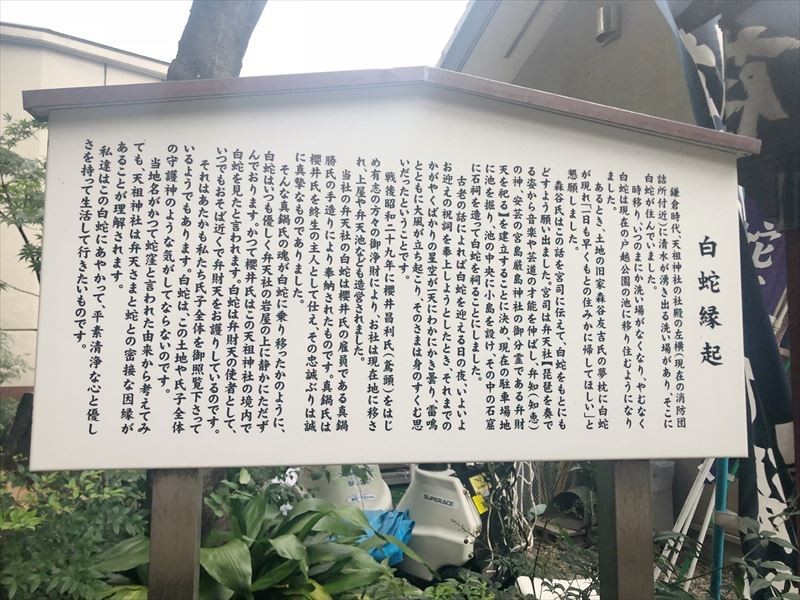 白蛇縁起
鎌倉時代、天祖神社の社殿の左横(現在の消防団
詰所付近)に清水が湧き出る洗い場があり、そこに
白蛇が住んでいました。
時移り、いつのまにか洗い場がなくなり、やむなく
白蛇は現在の戸越公園の池に移り住むようになり
ました。
あるとき、土地の旧家森谷友吉氏の夢枕に白蛇
が現れ「一日も早くもとの住みかに帰してほしい」と
懇願しました。
森谷氏はこの話を宮司に伝えて、白蛇をもとにも
どすよう願い出ました。宮司は弁天社【琵琶を奏で
る姿から音楽や芸道の才能を伸ばし弁知(知恵)
の神、安芸の宮島厳島神社の御分霊である弁財
天を祀る】を建立することに決め、現在の駐車場地
に池を掘り、池の中央に小島を設け、その中の石窟
に石祠を造って白蛇を祠ることにしました。
古老の話によれば白蛇を迎える日の夜、いよいよ
お迎えの祝詞を奉上しようとしたとき、それまでの
かがやくばかりの星空が一天にわかにかき曇り、雷鳴
とともに大風が立ち起こり、そのさまは身のすくむ思
いだったということです。
戦後昭和二十九年に櫻井昌利氏(鳶頭)をはじ
め有志の方々の御浄財により、お社は現在地に移さ
れ、上屋や弁天池なども造営されました。
当社の弁天社の白蛇は櫻井氏の雇員である真鍋
勝氏の手造りにより奉納されたものです。真鍋氏は
櫻井氏を終生の主人として仕え、その忠誠ぶりは誠
に真摯なものでありました。
そんな真鍋氏の魂が白蛇に乗り移ったかのように、
白蛇はいつも優しく弁天社の岩屋の上に静かにたたず
んでおります。かつて櫻井氏はこの天祖神社の境内で
白蛇を見たと言われます。白蛇は弁財天の使者として、
いつでもおそば近くで弁財天をお護りしているのです。
それはあたかも私たち氏子全体を御照覧下さって
いるようでもあります。白蛇は、この土地や氏子全体
の守護神のような気がしてならないのです。
当地名がかつて蛇窪と言われた由来から考えてみ
ても、天祖神社は弁天さまと蛇との密接な因縁が
あることが理解されます。
私達はこの白蛇にあやかって、平素清浄な心と優し
さを持って生活して行きたいものです。
SUPER ACE